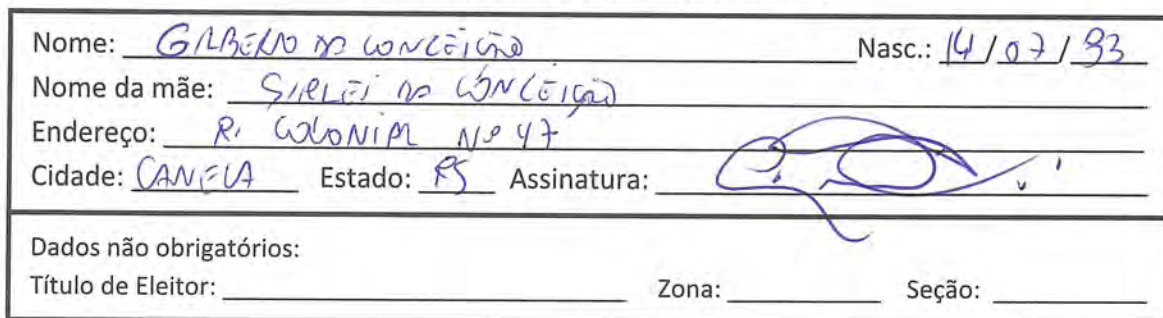 Nome: GILBERTO DA CONCEIÇÃO Nasc.: 14/07/93
Nome da mãe: SIRLEI DA CONCEIÇÃO
Endereço: R. COLONIAL Nº 47
Cidade: CANELA Estado: RS Assinatura:
Dados não obrigatórios:
Título de Eleitor: Zona: Seção: